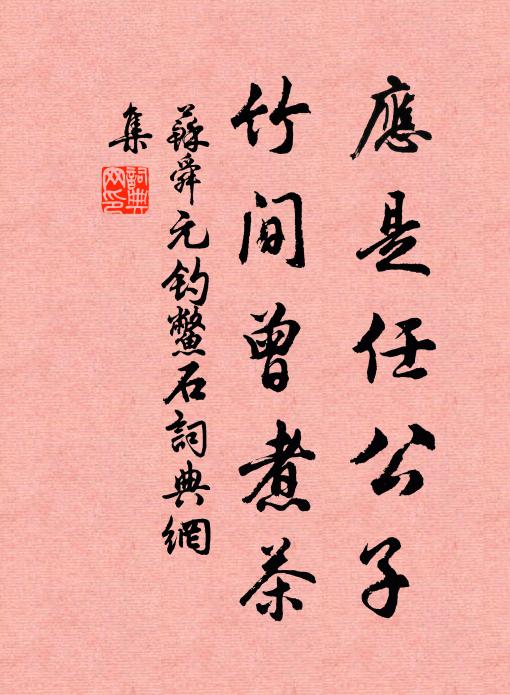 應是任公子
竹間曾煮茶
蘇舜元釣鱉石詞典網
集
詞典
网印